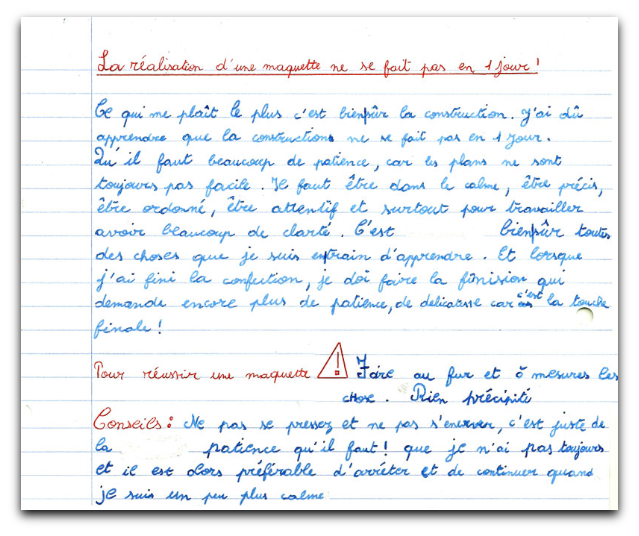 La réalisation d'une maquette ne se fait pas en 1 jour !
Ce qui me plaît le plus c'est bien sûr la construction. J'ai dû
apprendre que la constructions ne se fait pas en 1 jour.
Qu'il faut beaucoup de patience, car les plans ne sont
toujours pas facile. Il faut être dans le calme, être précis,
être ordonné, être attentif et surtout pour travailler
avoir beaucoup de clarté. C'est bien sûr toutes
des choses que je suis entrain d'apprendre. Et lorsque
j'ai fini la confection, je doi faire la finision qui
demande encore plus de patience, de delicatesse car c'est la touche
finale !
Pour réussir une maquette ! Faire au fur et ō mesures les
chose. Rien précipité
Conseils : Ne pas se pressez et ne pas s'enerver, c'est juste de
la patience qu'il faut ! que je n'ai pas toujours
et il est alors préférable d'arrêter et de continuer quand
je suis un peu plus calme